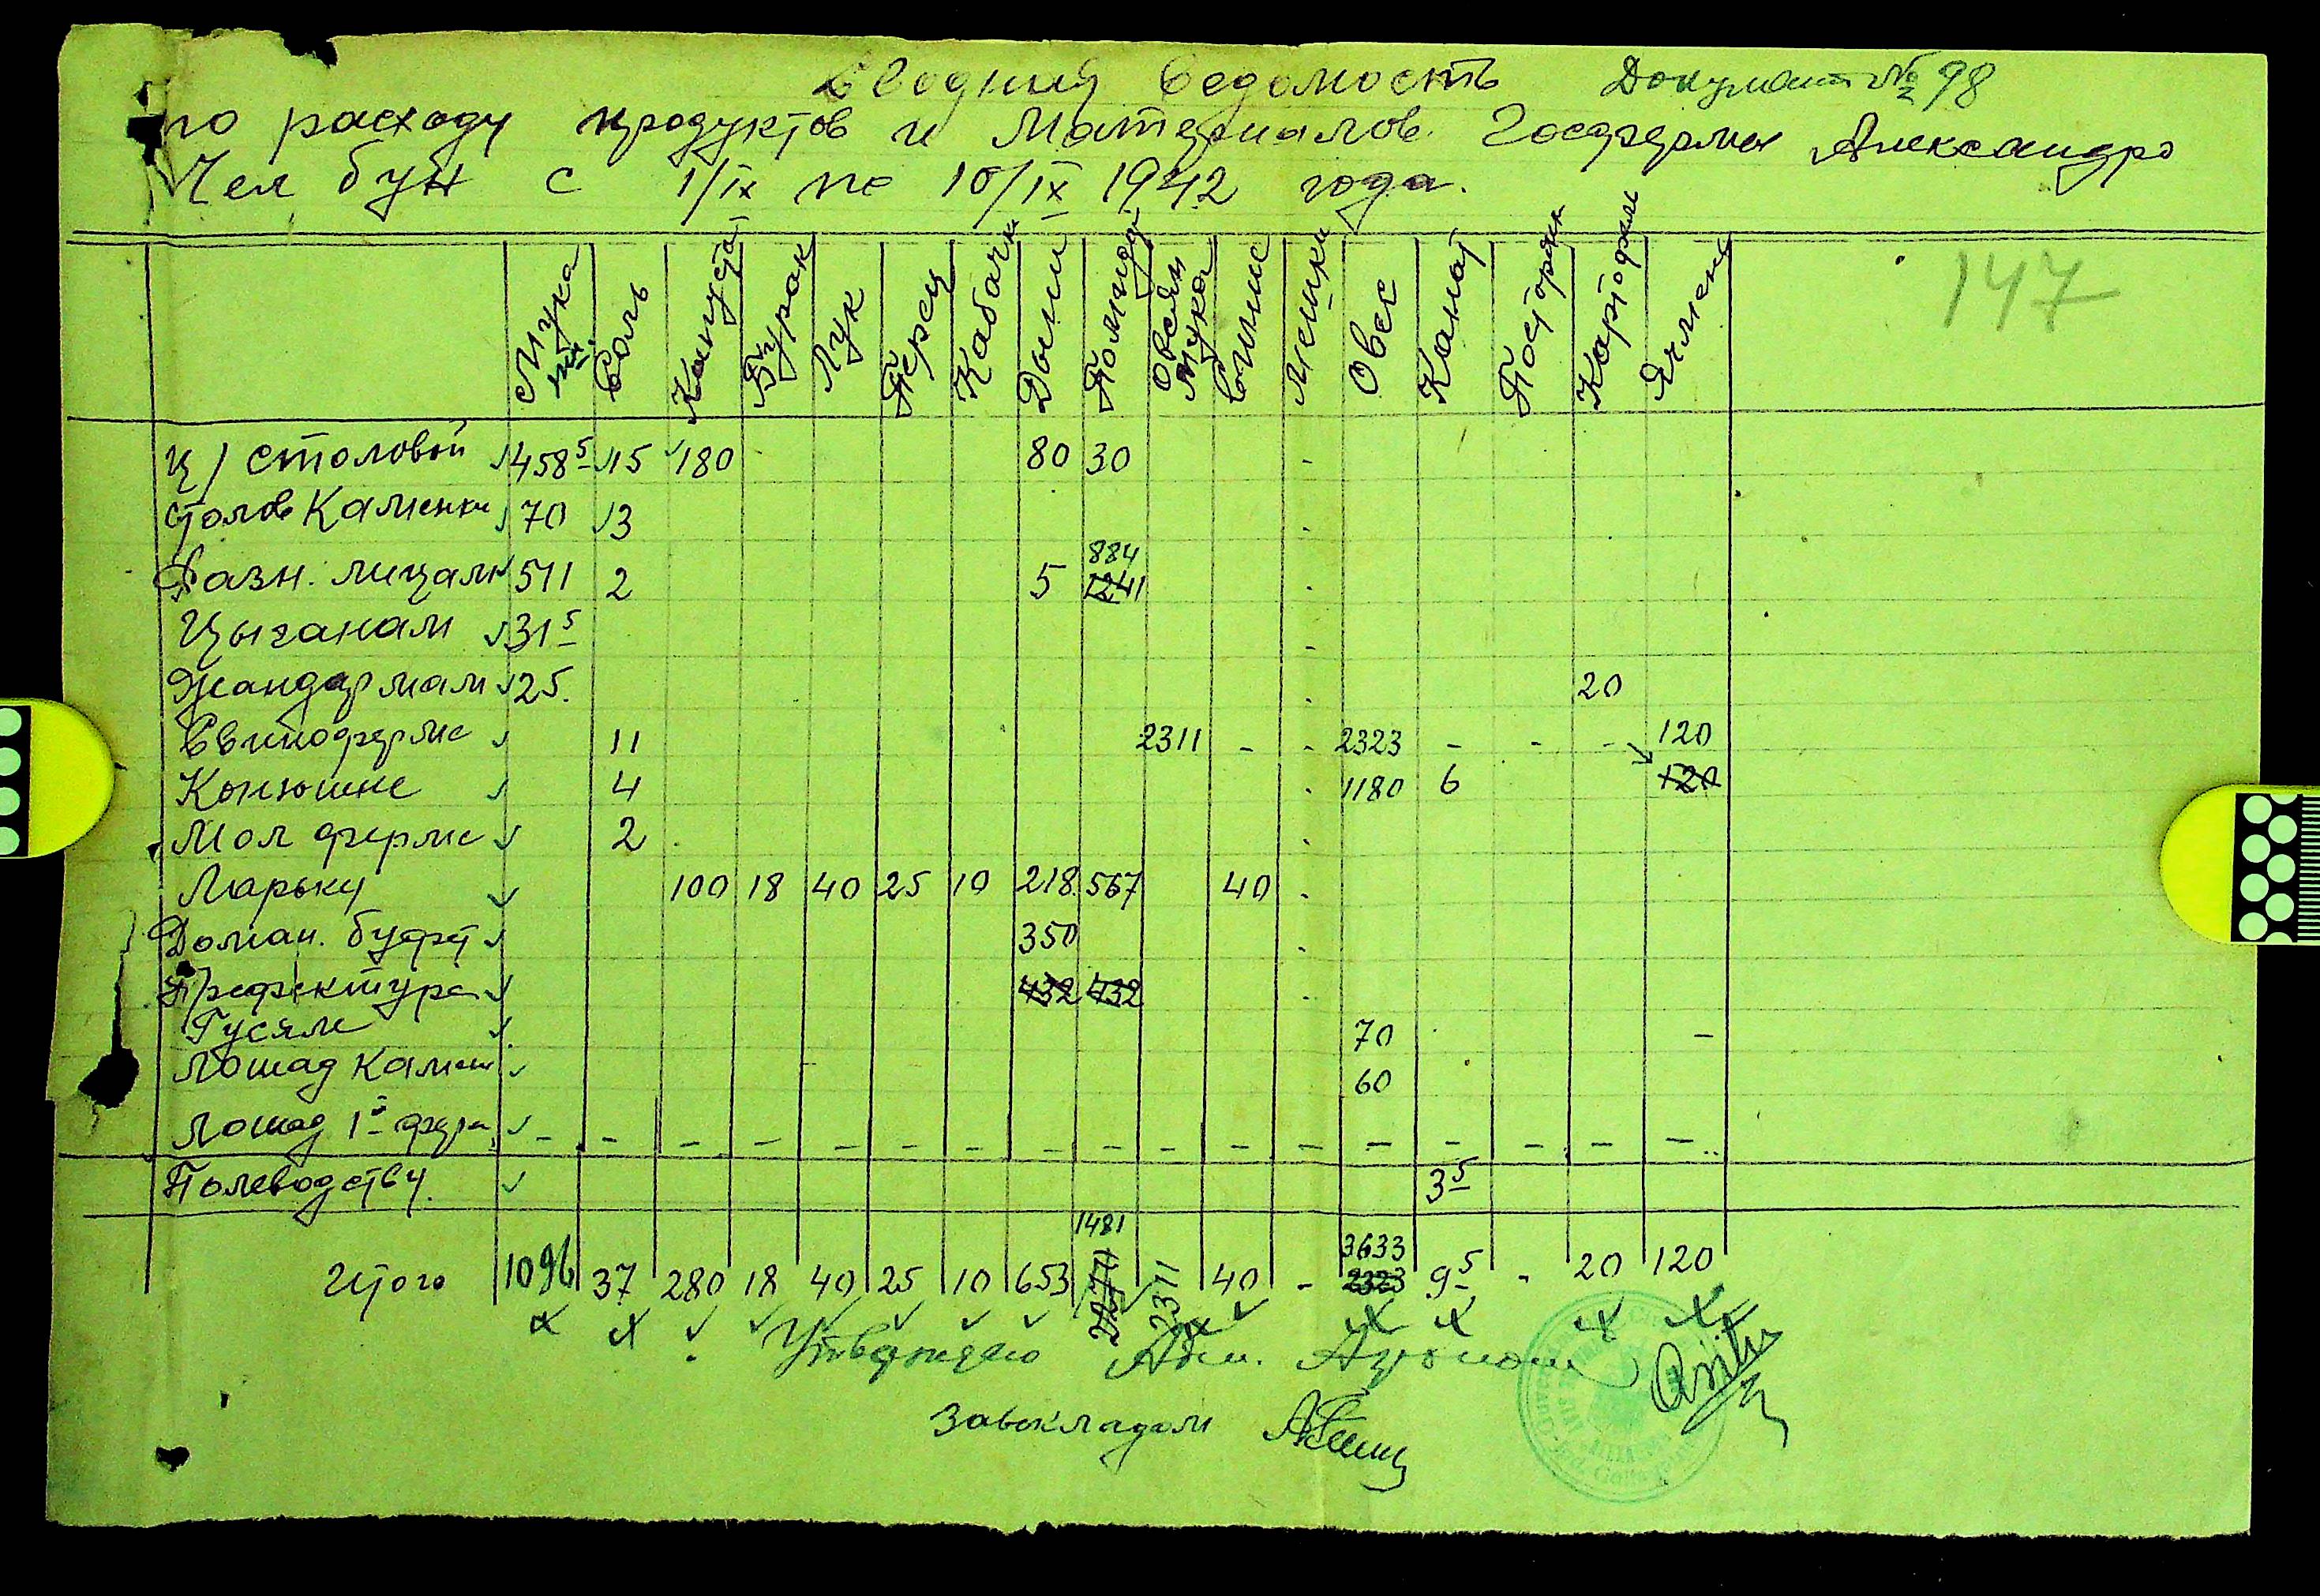 Сводная ведомость Документ № 98
по расходу продуктов и материалов Госфермы Александро
Чел бун с 1/IX по 10/IX 1942 года.
147
Мука пш. Соль Капуста Бурак Лук Перец Кабачки Дыни Помидор Овсян мука Мешки Овес Канат Посторонк Картофель Ячмень
Ц/столовой 458 5 15 180 80 30
Столов Каменки 70 3
884
Разн. лицам 511 2 5 1241
Цыганам 31 5
Жандармам 25. 20
Свиноферме 11 2311 - - 2323 - - - 120
Конюшне 4 1180 6 120
Мол ферме 2
Ларьку 100 18 40 25 10 218 567 40
Доман. буфет 350
Префектура 432 432
Гусям 70 -
Лошад Камен 60
Лошад 1й фер. - - - - - - - - - - - - - - - - -
Полеводству. 3 5
1481 3633
Итого 1096 37 280 18 40 25 10 653 2311 40 - 2323 9 5 - 20 120
Утверждаю Адм. Агроном
Завскладом